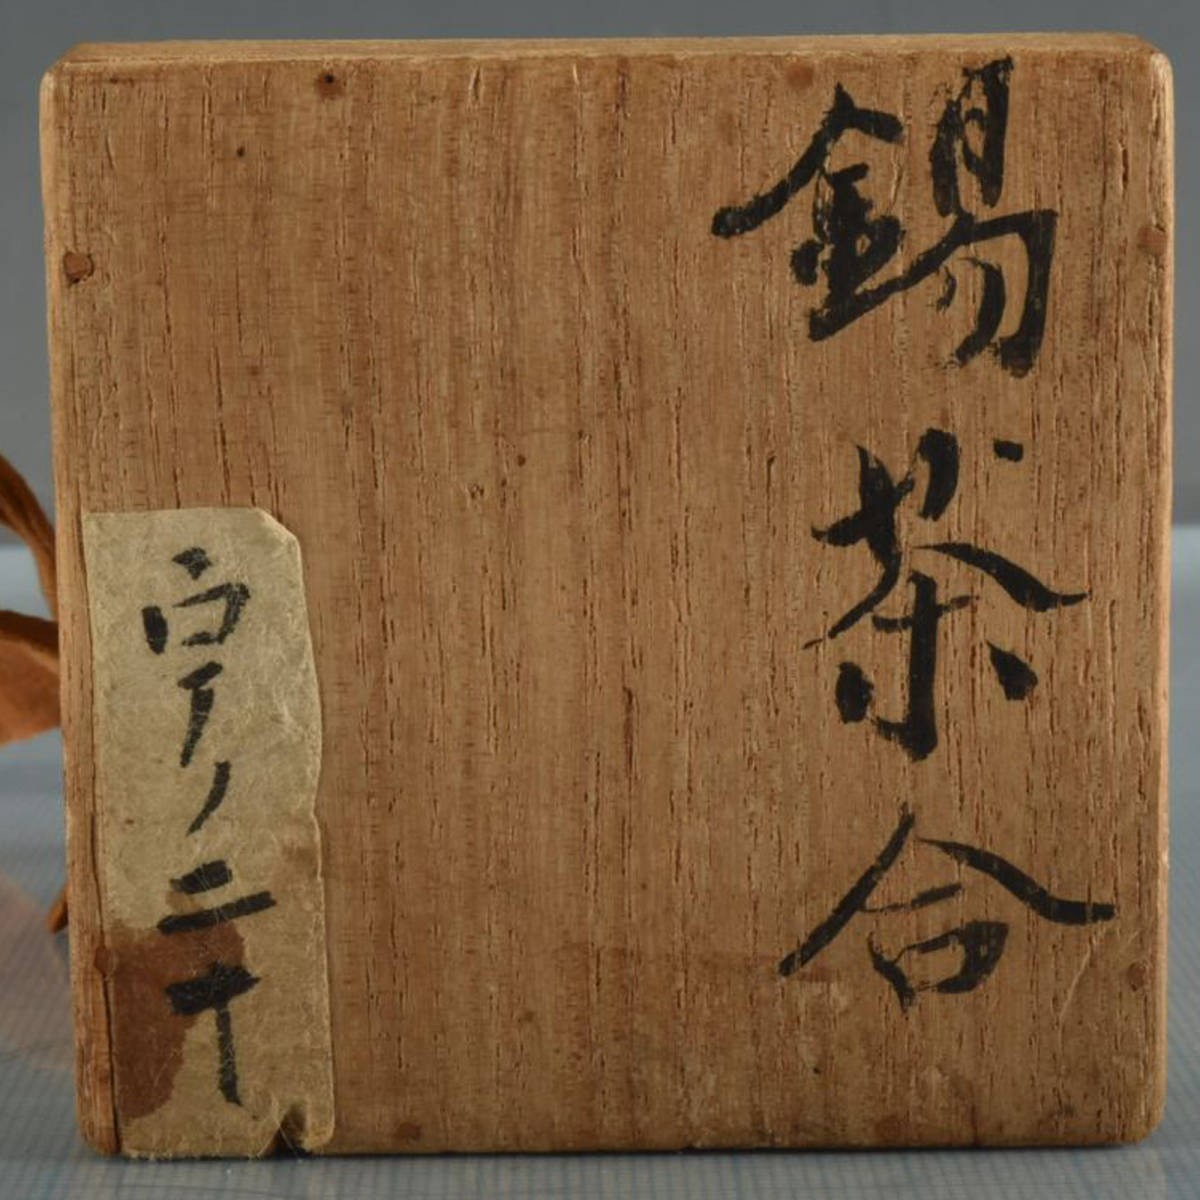 錫茶合
ロ丁ノ二十